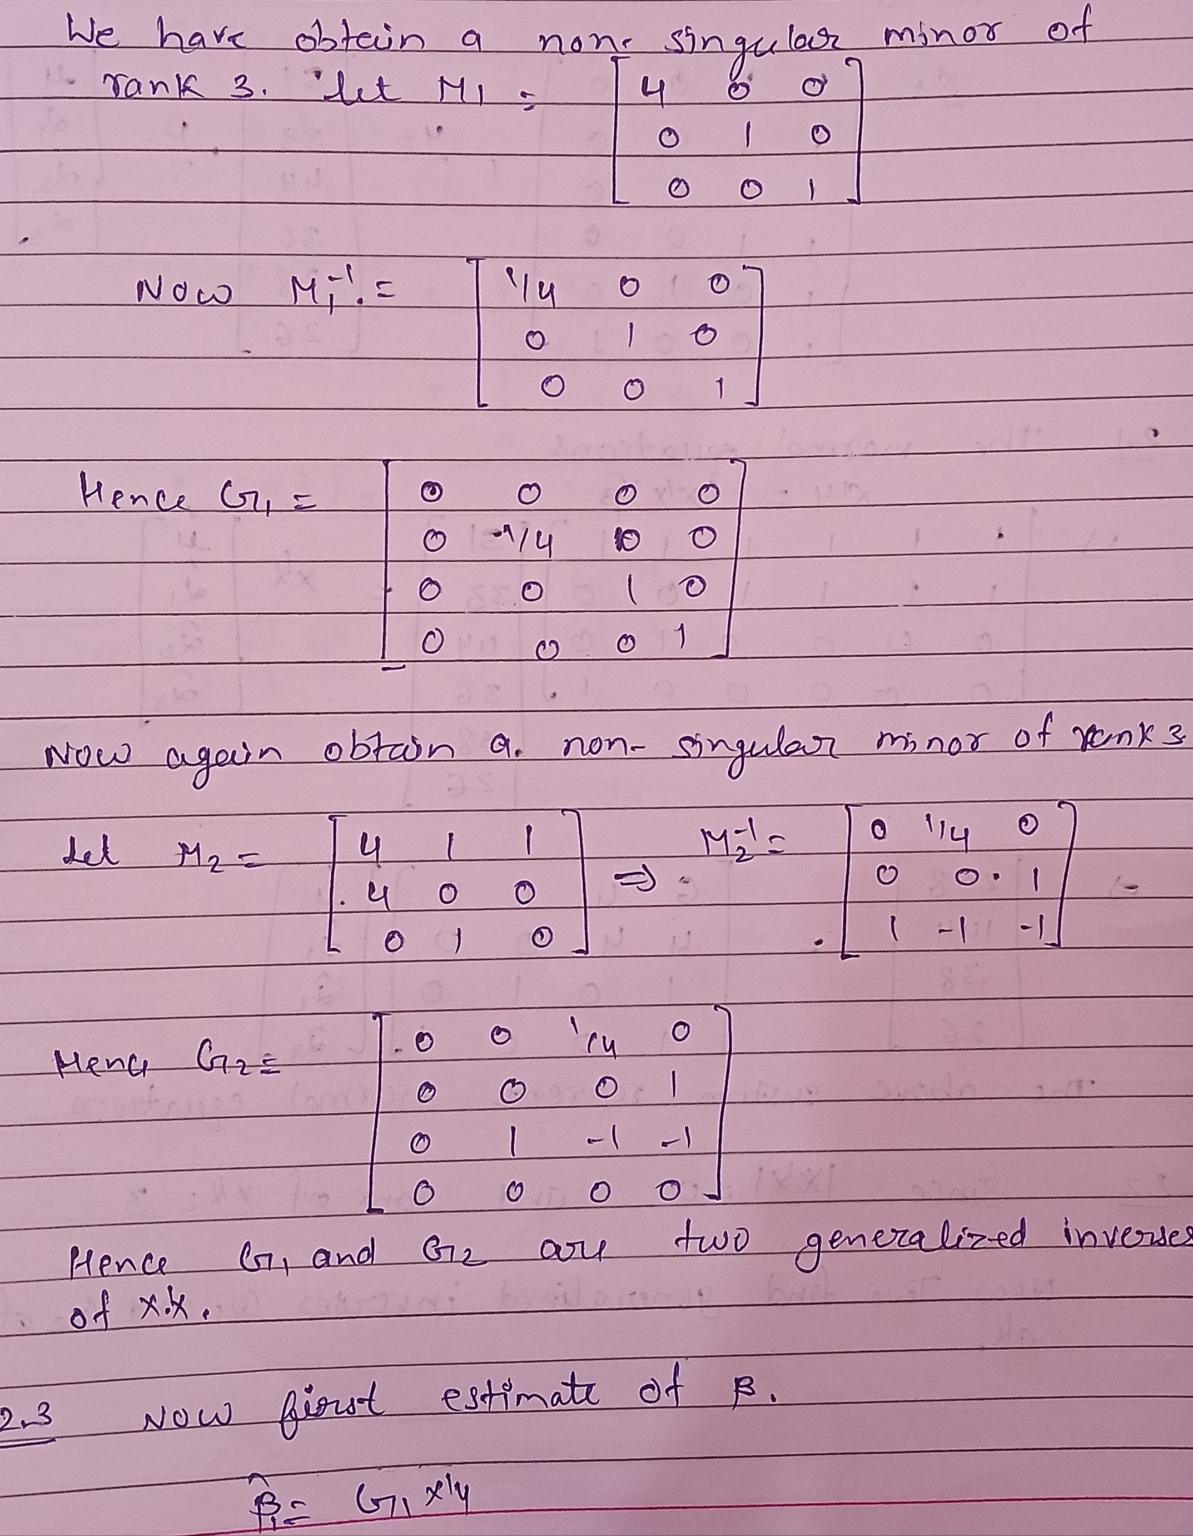 We have obtain a non- singular minor of
rank 3. let M1 = [ 4 0 0
0 1 0
0 0 1 ]
Now M1^-1 = [ 1/4 0 0
0 1 0
0 0 1 ]
Hence G1 = [ 0 0 0 0
0 1/4 0 0
0 0 1 0
0 0 0 1 ]
Now again obtain a non- singular minor of rank 3
Let M2 = [ 4 1 1
4 0 0
0 1 0 ] ⇒ M2^-1 = [ 0 1/4 0
0 0 1
1 -1 -1 ]
Hence G2 = [ 0 0 1/4 0
0 0 0 1
0 1 -1 -1
0 0 0 0 ]
Hence G1 and G2 are two generalized inverses
of x'x.
2.3 Now first estimate of β.
β̂1 = G1 x'y